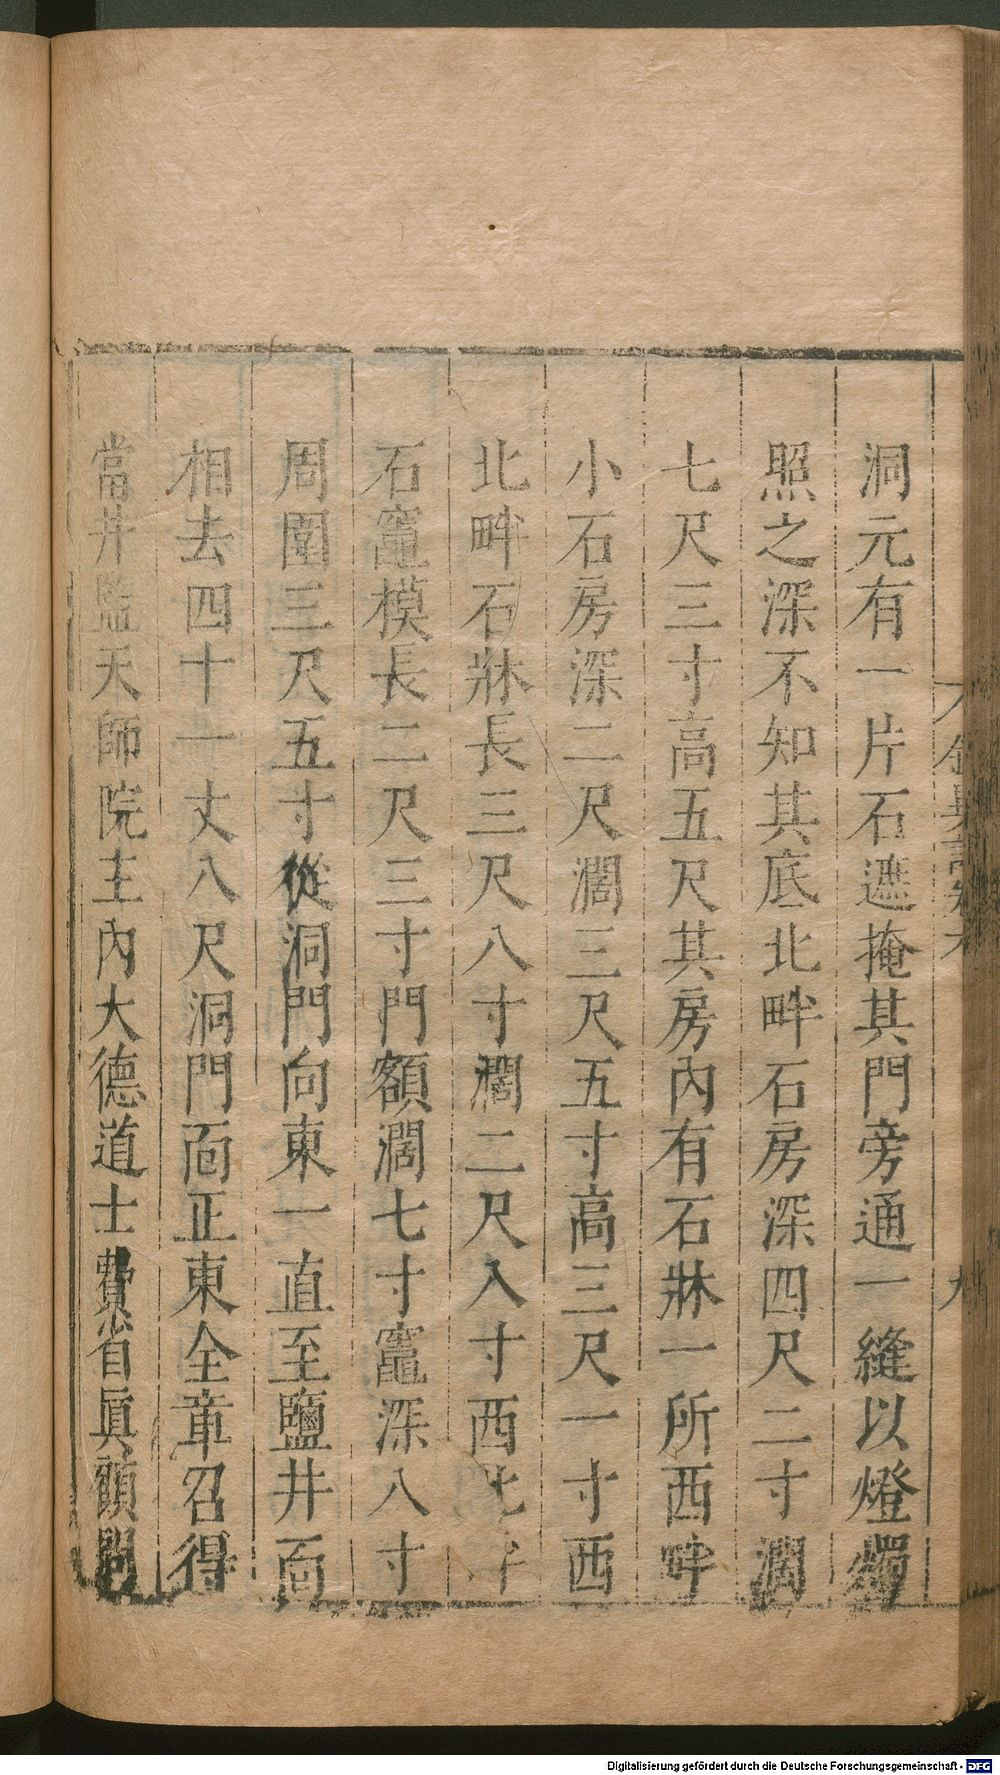 洞元有一片石遮掩其門旁通一縫以燈燭
照之深不知其底北畔石房深四尺二寸濶
七尺三寸高五尺其房內有石牀一所西畔
小石房深二尺濶三尺五寸高三尺一寸西
北畔石牀長三尺八寸濶二尺入寸西北畔
石竈模長二尺三寸門額濶七寸竈深八寸
周圍三尺五寸從洞門向東一直至鹽井面
相去四十一丈八尺洞門面正東全章召得
當井監天師院主內大德道士費省眞顔問
Digitalisierung gefördert durch die Deutsche Forschungsgemeinschaft - DFG